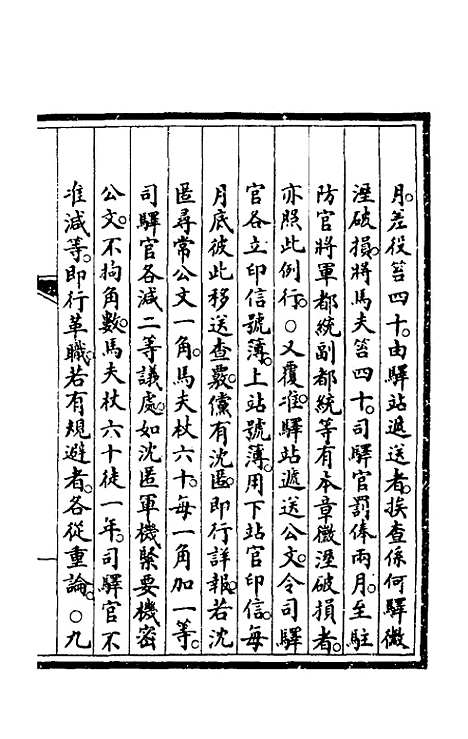 月。差役笞四十。由驛站遞送者。挨查係何驛微
溼破損。將馬夫笞四十。司驛官罰俸兩月。至駐
防官將軍都統副都統等有本章微溼破損者。
亦照此例行。○又覆准驛站遞送公文。令司驛
官各立印信號簿。上站號簿。用下站官印信。每
月底彼此移送查覈。儻有沈匿。即行詳報。若沈
匿尋常公文一角。馬夫杖六十。每一角加一等。
司驛官各減二等議處。如沈匿軍機緊要機密
公文。不拘角數。馬夫杖六十徒一年。司驛官不
准減等。即行革職。若有規避者。各從重論。○九